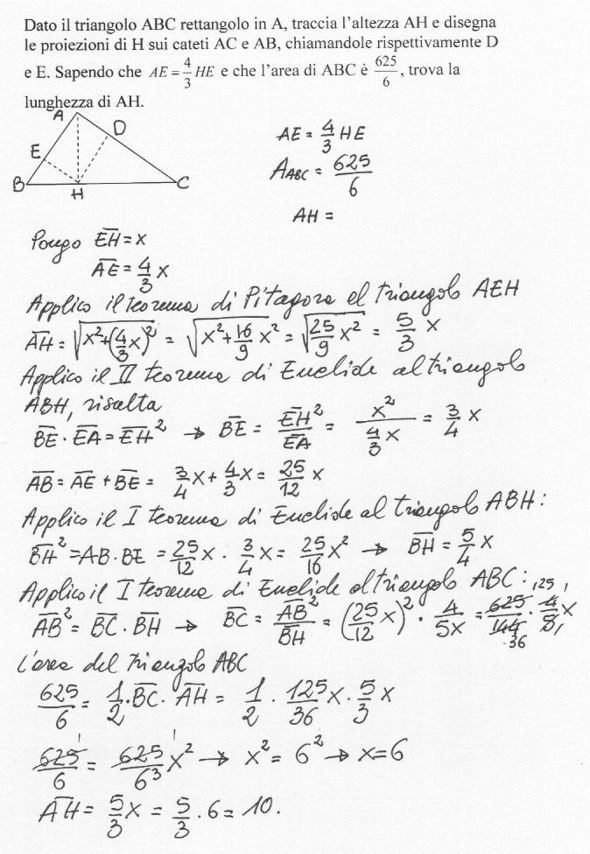 Dato il triangolo ABC rettangolo in A, traccia l'altezza AH e disegna
le proiezioni di H sui cateti AC e AB, chiamandole rispettivamente D
e E. Sapendo che AE = 4/3 HE e che l'area di ABC è 625/6, trova la
lunghezza di AH.
A
D
E
B
H
C
AE = 4/3 HE
A_ABC = 625/6
AH =
Pongo EH = x
AE = 4/3 x
Applico il teorema di Pitagora el triangolo AEH
AH = √(x²+(4/3 x)²) = √(x²+16/9 x²) = √(25/9 x²) = 5/3 x
Applico il II teorema di Euclide al triangolo
ABH, risulta
BE · EA = EH² → BE = EH²/EA = x²/(4/3 x) = 3/4 x
AB = AE + BE = 3/4 x + 4/3 x = 25/12 x
Applico il I teorema di Euclide al triangolo ABH:
BH² = AB · BE = 25/12 x · 3/4 x = 25/16 x² → BH = 5/4 x
Applico il I teorema di Euclide al triangolo ABC:
AB² = BC · BH → BC = AB²/BH = (25/12 x)² · 4/5x = 625/144 · 4/5 x
125 1
36 1
L'area del triangolo ABC
625/6 = 1/2 · BC · AH = 1/2 · 125/36 x · 5/3 x
625/6 = 625/6³ x² → x² = 6² → x = 6
1 1
AH = 5/3 x = 5/3 · 6 = 10.